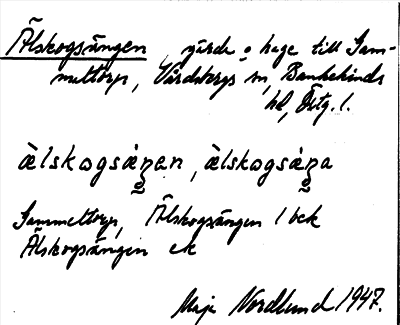 Älskogsängen, gärde o hage till Sam-
mettorp, Vårdsbergs sn, Bankekinds
hd, Östg. l.
àlskogsáŋen, àlskogsáŋa
Sammettorp, Älskogsängen 1 bck
Älskogsängen ek
Maja Nordlund 1947.